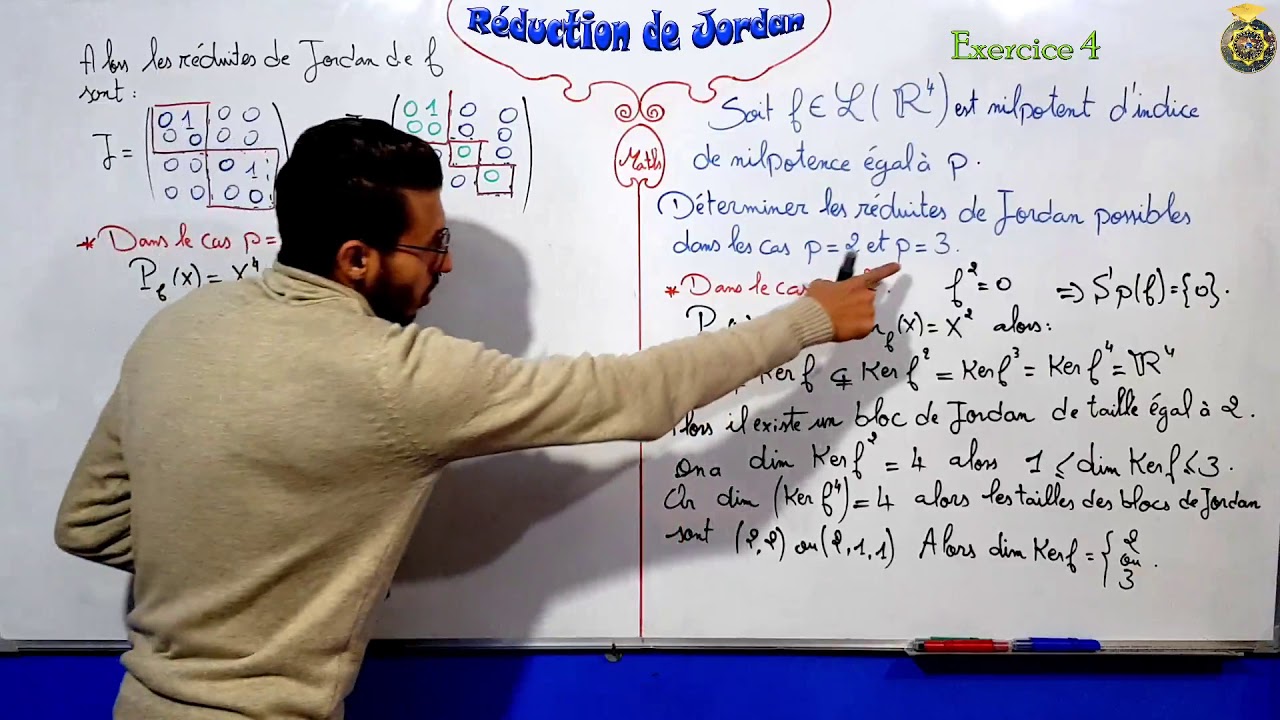 Réduction de Jordan
Exercice 4
Maths
Alors les réduites de Jordan de f
sont :
J = 0 1 0 0
0 0 0 0
0 0 0 1
0 0 0 0
0 1 0 0
0 0 0 0
0 0
0 0
* Dans le cas p=
P_f(x) = X⁴
Soit f ∈ ℒ(ℝ⁴) est nilpotent d'indice
de nilpotence égal à p.
Déterminer les réduites de Jordan possibles
dans les cas p=2 et p=3.
* Dans le cas f²=0 ⟹ Sp(f)={0}.
P (x)= X² alors:
Ker f ⊊ Ker f² = Ker f³ = Ker f⁴ = ℝ⁴
Alors il existe un bloc de Jordan de taille égal à 2.
On a dim Ker f² = 4 alors 1 ≤ dim Ker f ≤ 3.
Or dim (Ker f⁴) = 4 alors les tailles des blocs de Jordan
sont (2,2) ou (2,1,1) Alors dim Ker f = { 2 ou 3 .